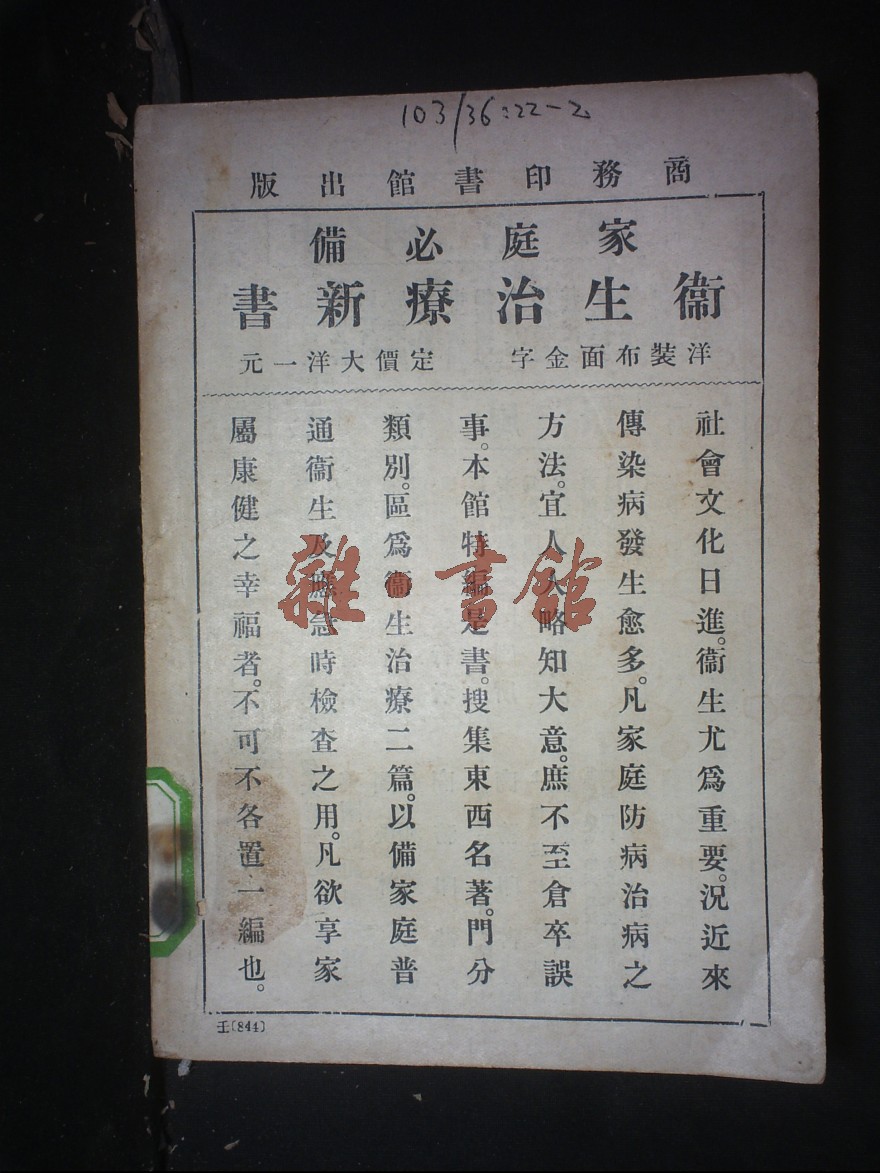 103/36:22-2
商務印書館出版
家庭必備
衞生治療新書
洋裝布面金字　定價大洋一元
社會文化日進。衞生尤爲重要。況近來
傳染病發生愈多。凡家庭防病治病之
方法。宜人人略知大意。庶不至倉卒誤
事。本館特編是書。搜集東西名著。門分
類別。區爲衞生治療二篇。以備家庭普
通衞生及應急時檢查之用。凡欲享家
屬康健之幸福者。不可不各置一編也。
壬〔844〕
雜·書館